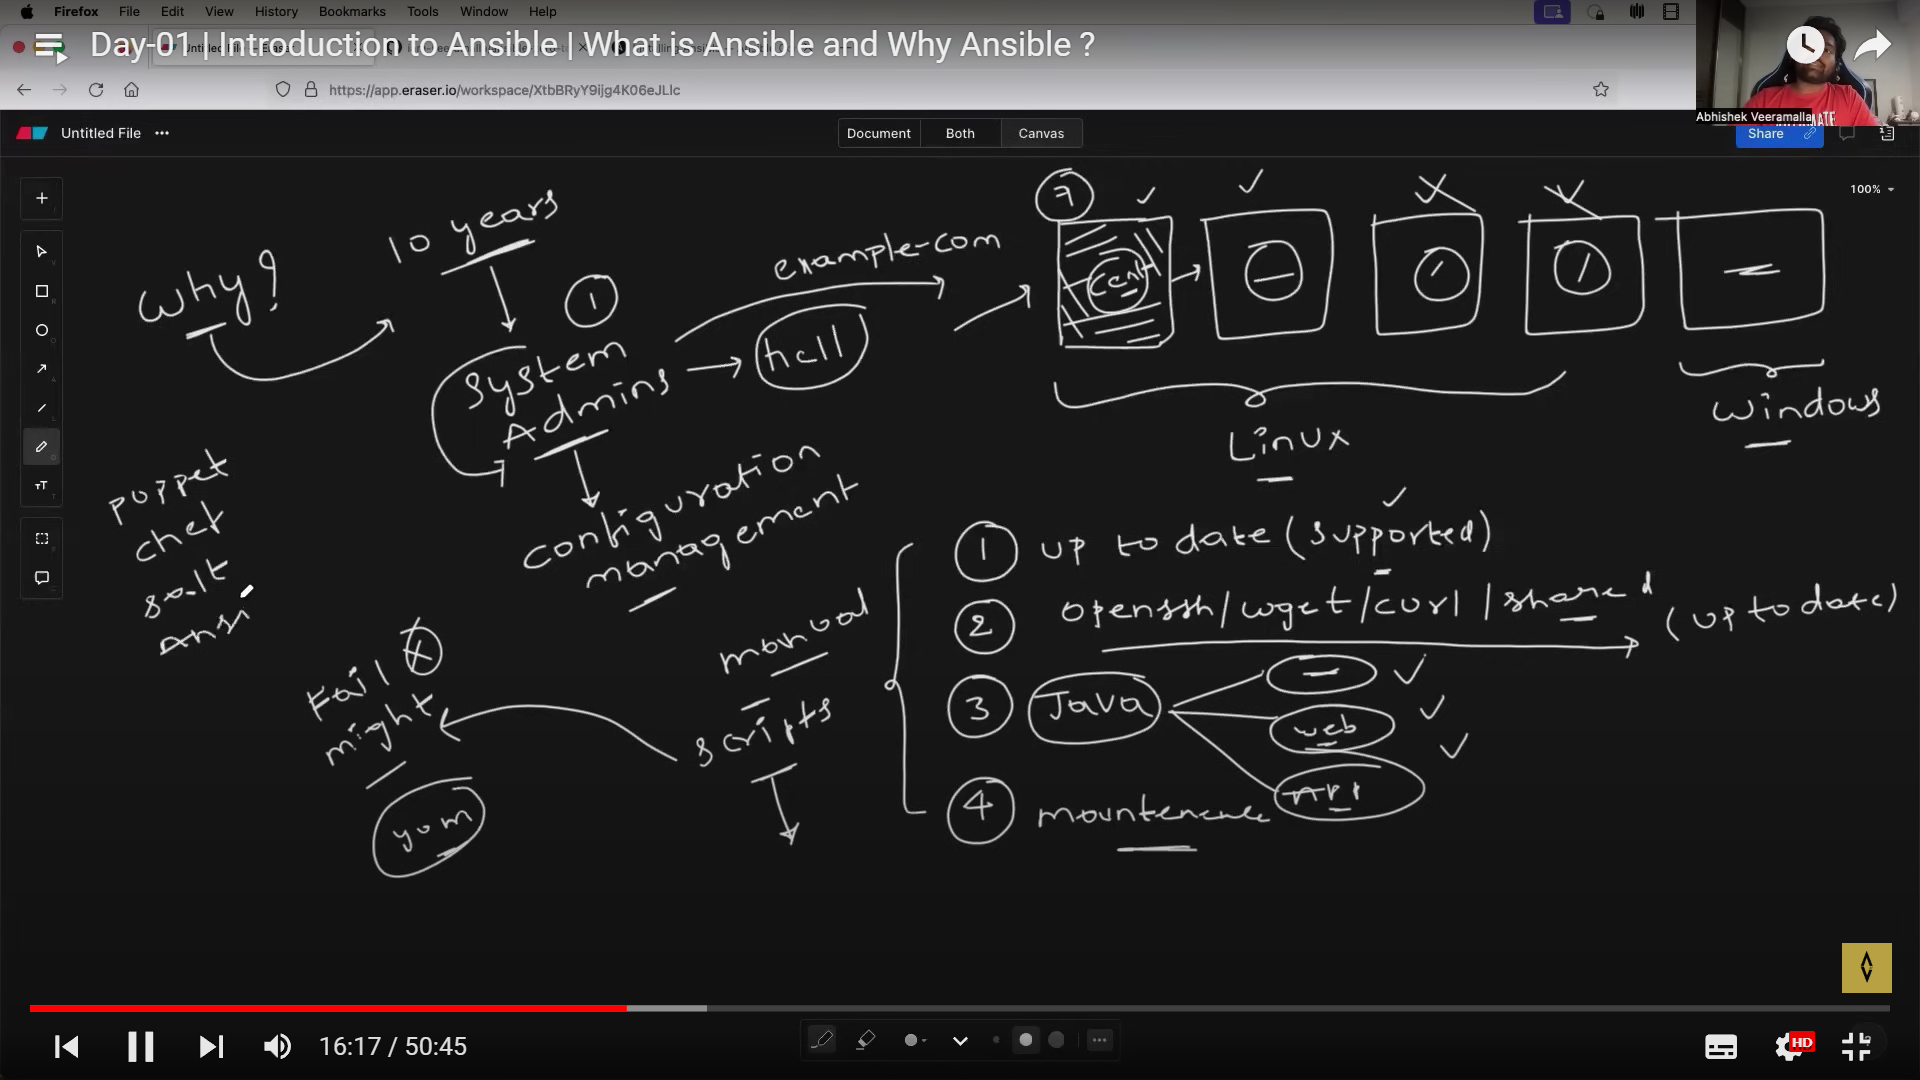 Firefox File Edit View History Bookmarks Tools Window Help
Day-01 | Introduction to Ansible | What is Ansible and Why Ansible ?
https://app.eraser.io/workspace/XtbBRyY9ijg4K06eJLlc
Abhishek Veeramalla
Untitled File
Document Both Canvas
Share
100%
Why?
10 years
1
System
Admins
example.com
hall
7
cent
Linux
Windows
configuration
management
puppet
chef
salt
Ansi
manual
scripts
Fail
might
yum
1 up to date (supported)
2 openssh/wget/curl/shared (up to date)
3 Java
web
API
4 maintenance
16:17 / 50:45
HD